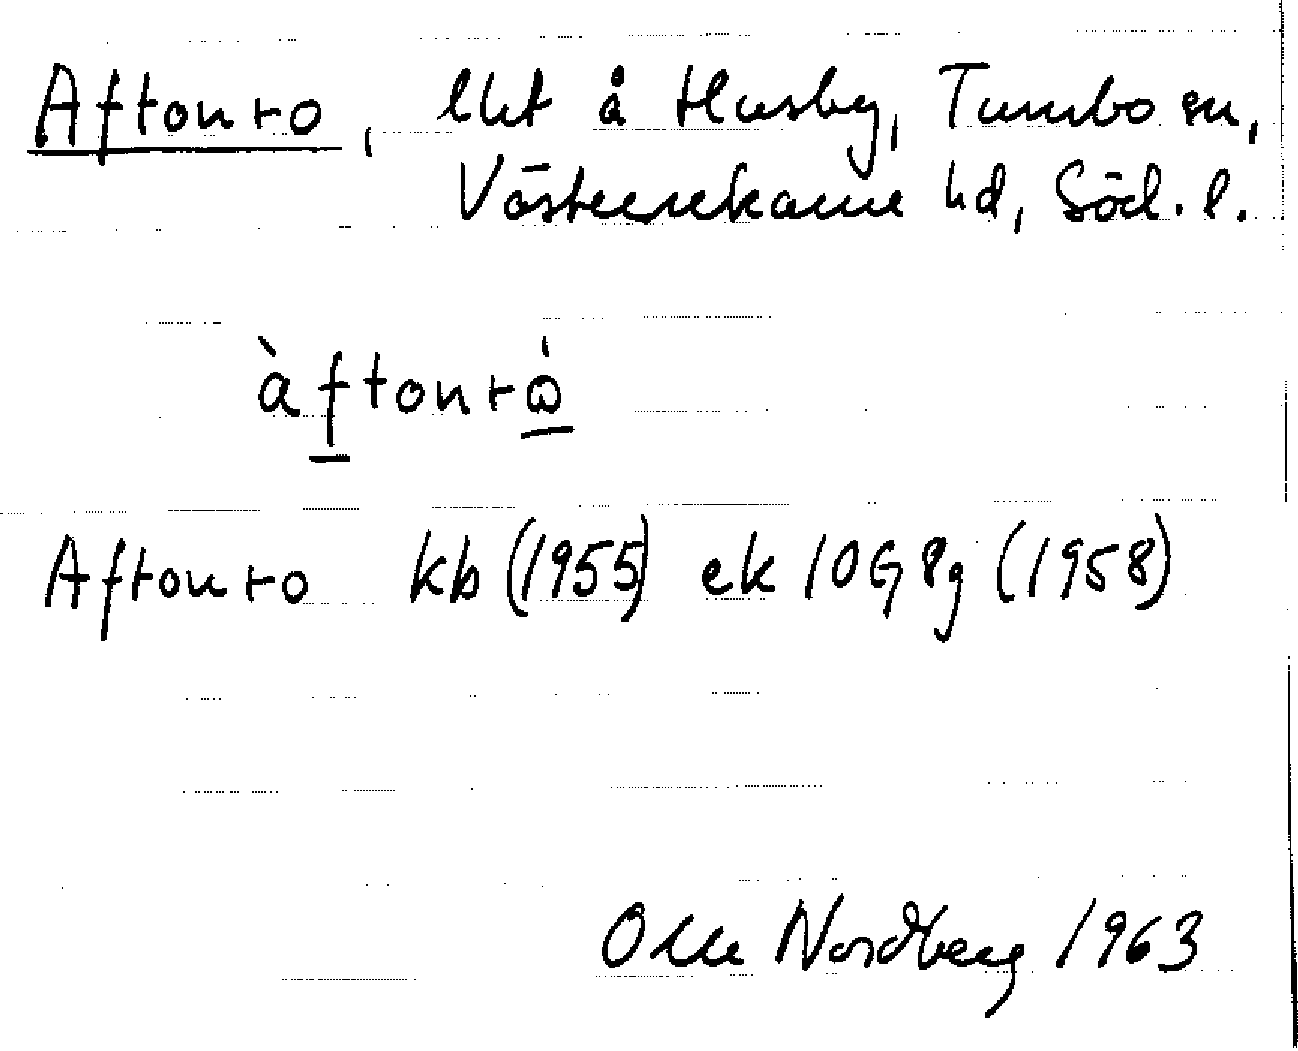 Aftonro, lht å Husby, Tumbo sn,
Västerrekarne hd, Söd. l.
àftonrό̱
Aftonro kb (1955) ek 10G8g (1958)
Olle Nordberg 1963